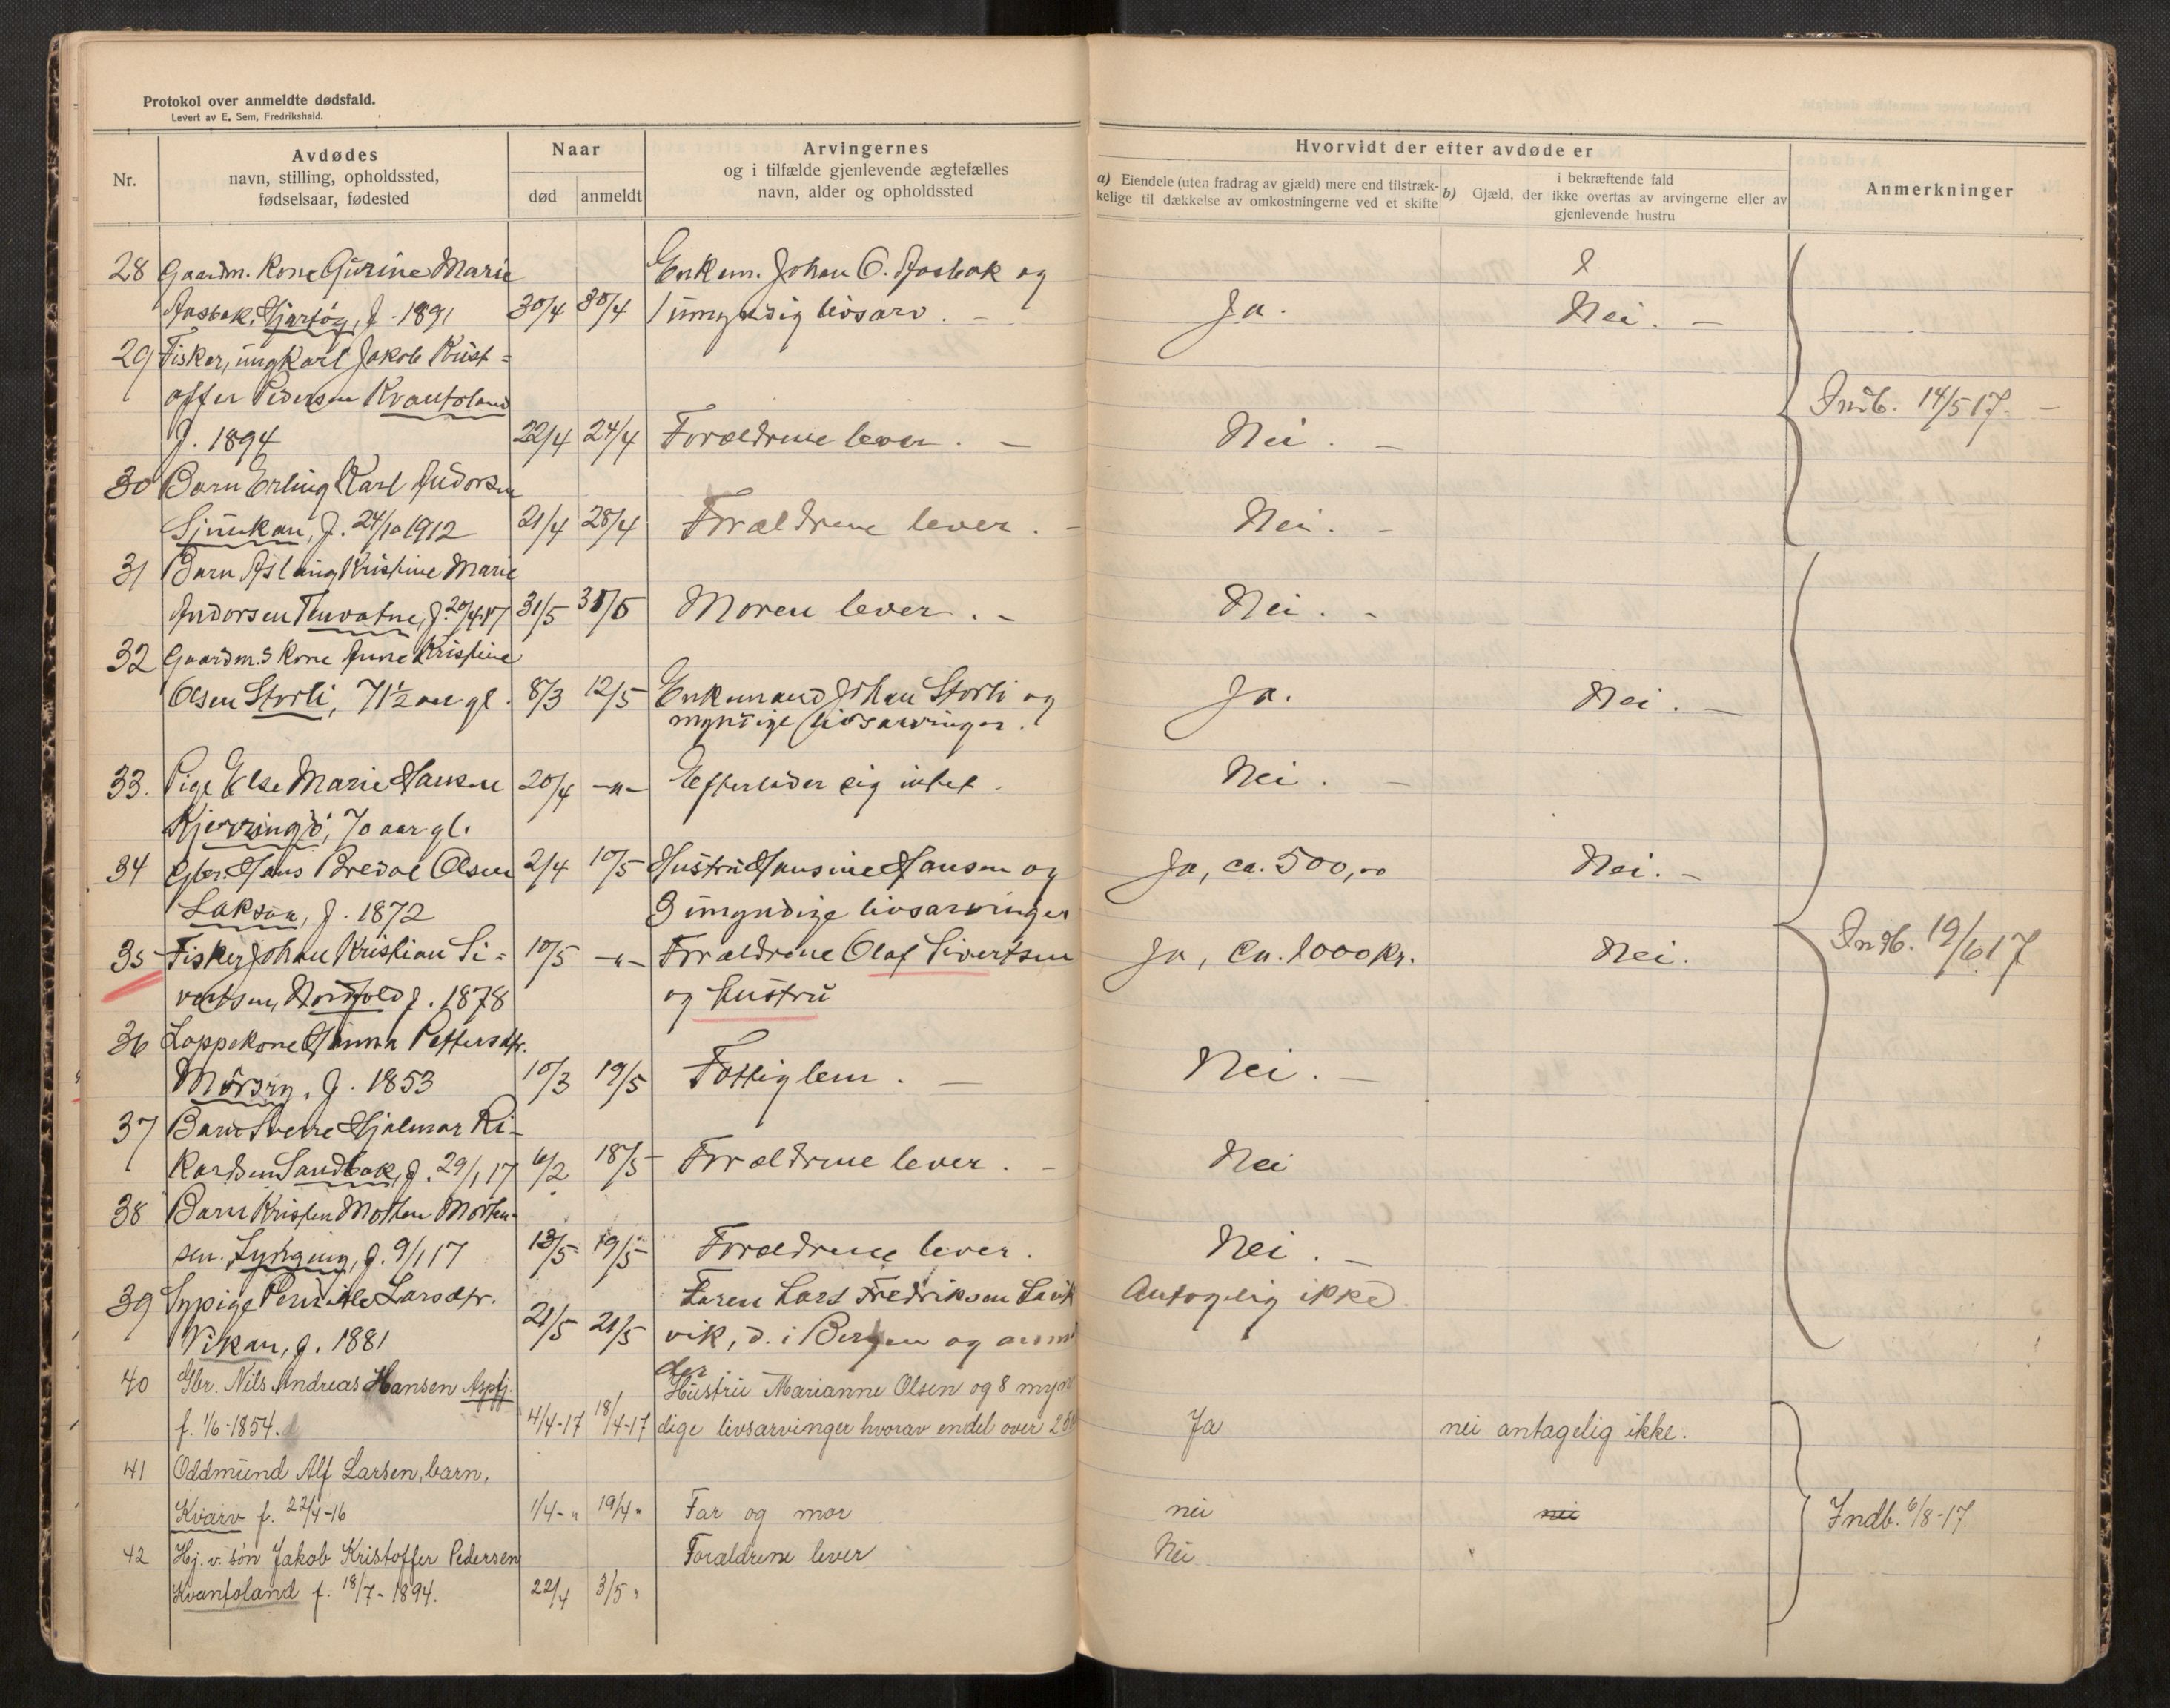 Protokol over anmeldte dødsfald.
Levert av E. Sem, Fredrikshald.
Nr.
Avdødes
navn, stilling, opholdssted,
fødselsaar, fødested
Naar
død
anmeldt
Arvingernes
og i tilfælde gjenlevende ægtefælles
navn, alder og opholdssted
Hvorvidt der efter avdøde er
a) Eiendele (uten fradrag av gjæld) mere end tilstræk-
kelige til dækkelse av omkostningerne ved et skifte
b) Gjæld, der i bekræftende fald
ikke overtas av arvingerne eller av
gjenlevende hustru
Anmerkninger
28 Gaardm. Kone Gurine Marie Enkem. Johan O. Aasbak og
Aasbak, Hjartøy, f. 1891 30/4 30/4 1 umyndig livsarv. - Ja. Nei. -
29 Fisker, ungkarl Jakob Krist-
offer Pedersen Kvantoland Indb. 14/5 17. -
f. 1894 22/4 24/4 Forældrene lever. - Nei. -
30 Barn Erling Karl Andorsen
Sjunkan, f. 24/10 1912 21/4 28/4 Forældrene lever. - Nei. -
31 Barn Aslaug Kristine Marie
Andorsen Tennvatne, f. 20/4 17 31/5 31/5 Moren lever. - Nei. -
32 Gaardm.s Kone Anne Kristine
Olsen Storli, 71½ aar gl. 8/3 12/5 Enkemand Johan Storli og Ja. Nei. -
myndige livsarvinger.
33. Pige Else Marie Hansen 20/4 -"- Efterlader sig intet. Nei. -
Kjerringö, 70 aar gl.
34 Gbr. Hans Bredal Olsen 2/4 10/5 Hustru Hansine Hansen og Ja, ca. 500,00 Nei. -
Laksaa, f. 1872 3 umyndige livsarvinger
35 Fisker Johan Kristian Si- 10/5 -"- Forældrene Olaf Sivertsen Ja, ca. 1000 kr. Nei. Indb. 19/6 17
vertsen, Nordfold f. 1878 og hustru
36 Lappekone Hanna Pettersdtr.
Mørsry, f. 1853 10/3 19/5 Fattiglem. - Nei. -
37 Barn Sverre Hjalmar Ri-
kardsen Sandbak, f. 29/1 17 6/2 18/5 Forældrene lever. - Nei
38 Barn Kristen Mothen Morten-
sen. Lyngeng, f. 9/1 17 13/5 19/5 Forældrene lever. Nei. -
39 Sypige Pernille Larsdtr. Faren Lars Fredriksen Antagelig ikke.
Vikan, f. 1881 21/5 21/5 vik, d. i Bergen og
40 Gbr. Nils Andreas Hansen Aspfj. Hustru Marianne Olsen og 8 myn
f. 1/6-1854. 4/4-17 18/4-17 dige livsarvinger hvorav endel over 25 Ja nei antagelig ikke.
41 Oddmund Alf Larsen, barn,
Kvarv f. 22/4-16 1/4-" 19/4" Far og mor nei nei Indb. 6/8-17.
42 Hj. v. søn Jakob Kristoffer Pedersen Forældrene lever Nei
Kvantoland f. 18/7-1894. 22/4 3/5 "